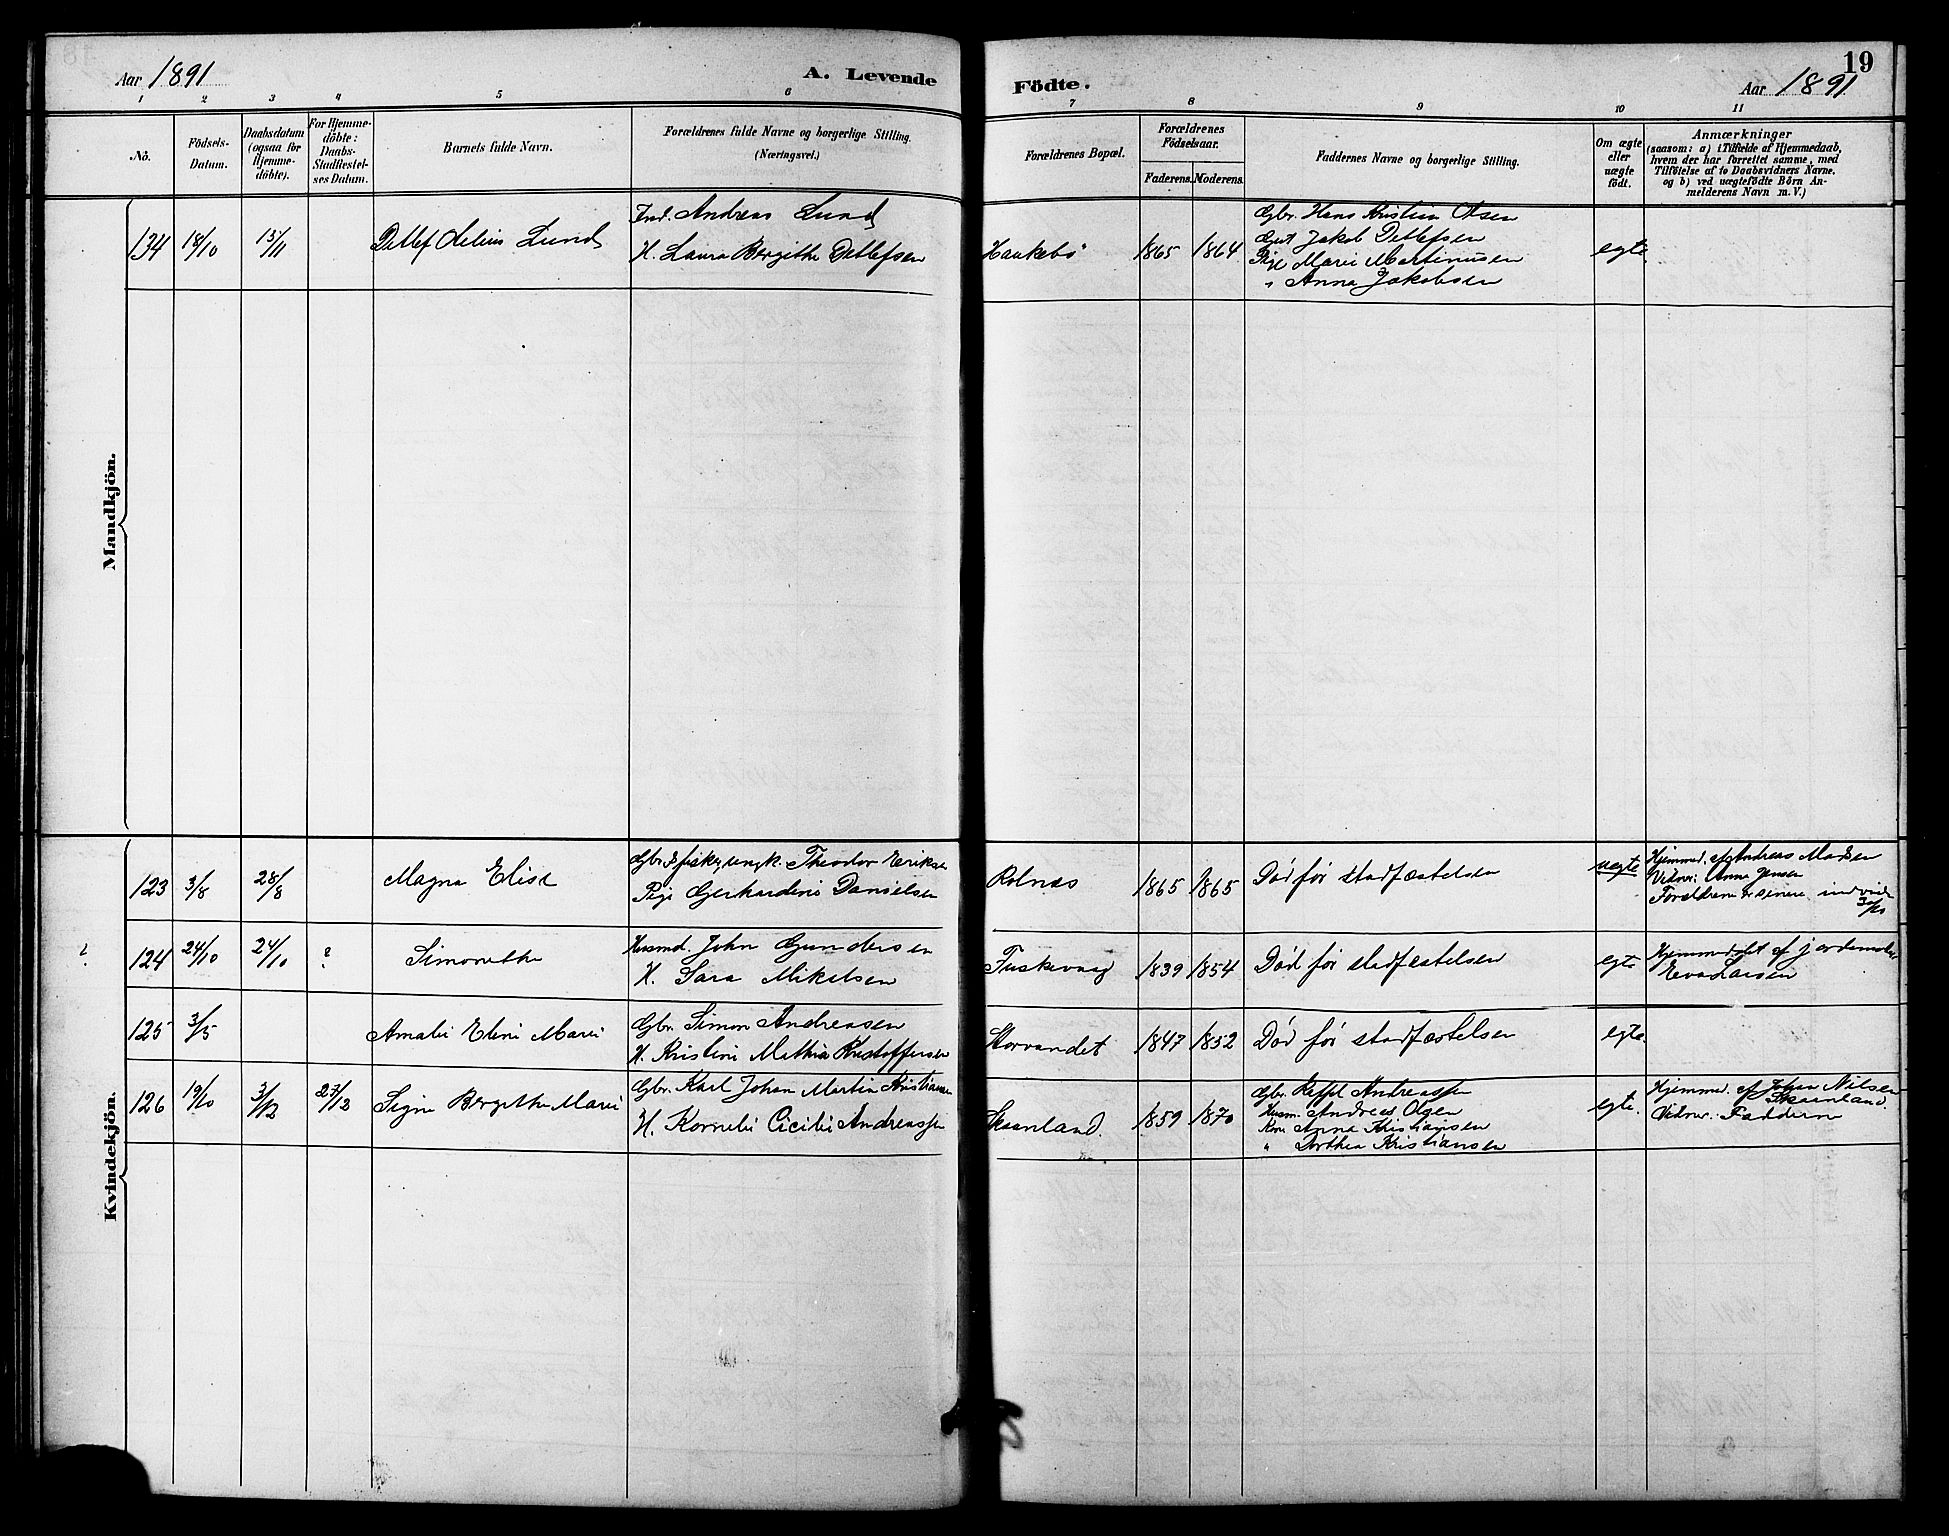 Aar 1891
A. Levende
Födte.
19
Aar 1891
1 2 3 4 5 6 7 8 9 10 11
No.
Födsels-
Datum.
Daabsdatum
(ogsaa for
Hjemme-
döbte).
For Hjemme-
döbte:
Daabs-
Stadfæstel-
ses Datum.
Barnets fulde Navn.
Forældrenes fulde Navne og borgerlige Stilling.
(Næringsvei.)
Forældrenes Bopæl.
Forældrenes
Födselsaar.
Faderens. Moderens.
Faddernes Navne og borgerlige Stilling.
Om ægte
eller
uægte
født.
Anmærkninger
(saasom: a) i Tilfælde af Hjemmedaab,
hvem der har forrettet samme, med
Tilföielse af to Daabsvidners Navne,
og b) ved uægtefödte Börn An-
melderens Navn m. V.)
Mandkjön.
134 18/10 15/11 Detlef Lund
Ind. Andreas Lund
H. Laura Bergithe Detlefsen
Haukebö 1865 1864
Gbr. Hans Kristian Olsen
Gut Jakob Detlefsen
Pige Marie Martinusen
" Anna Jakobsen
egte
Kvindekjön.
123 3/8 28/8 Magna Elise
Gbr. & fisker, ungk. Theodor Eriksen
Pige Gerhardine Danielsen
Rolnes 1865 1865 Död før stadfæstelsen uegte
Hjemmed. af Andreas Madsen
Vidner: Anna Jensen
Forældrene senere indviede
30/10
? 124 24/10 24/10 ? Simonette
Husmd. John Gundersen
H. Sara Mikelsen
Fiskevaag 1839 1854 Död før stadfæstelsen egte
Hjemmedøbt af jordemoder
Eva Larsen
125 3/5 Amalie Eline Marie
Gbr. Simon Andreasen
H. Kristine Mathia Kristoffersen
Storvandet 1847 1852 Död før stadfæstelsen egte
126 19/10 3/12 23/12 Signe Bergithe Marie
Gbr. Karl Johan Martin Kristiansen
H. Kornelie Cicilie Andreassen
Skaanland. 1859 1870
Gbr. Andreassen
Husm. Andreas Olsen
Kone Anna Kristiansen
" Dorthea Kristiansen
egte.
Hjemmed. af Johan Nilsen
Skaanland.
Vidner: Faddern